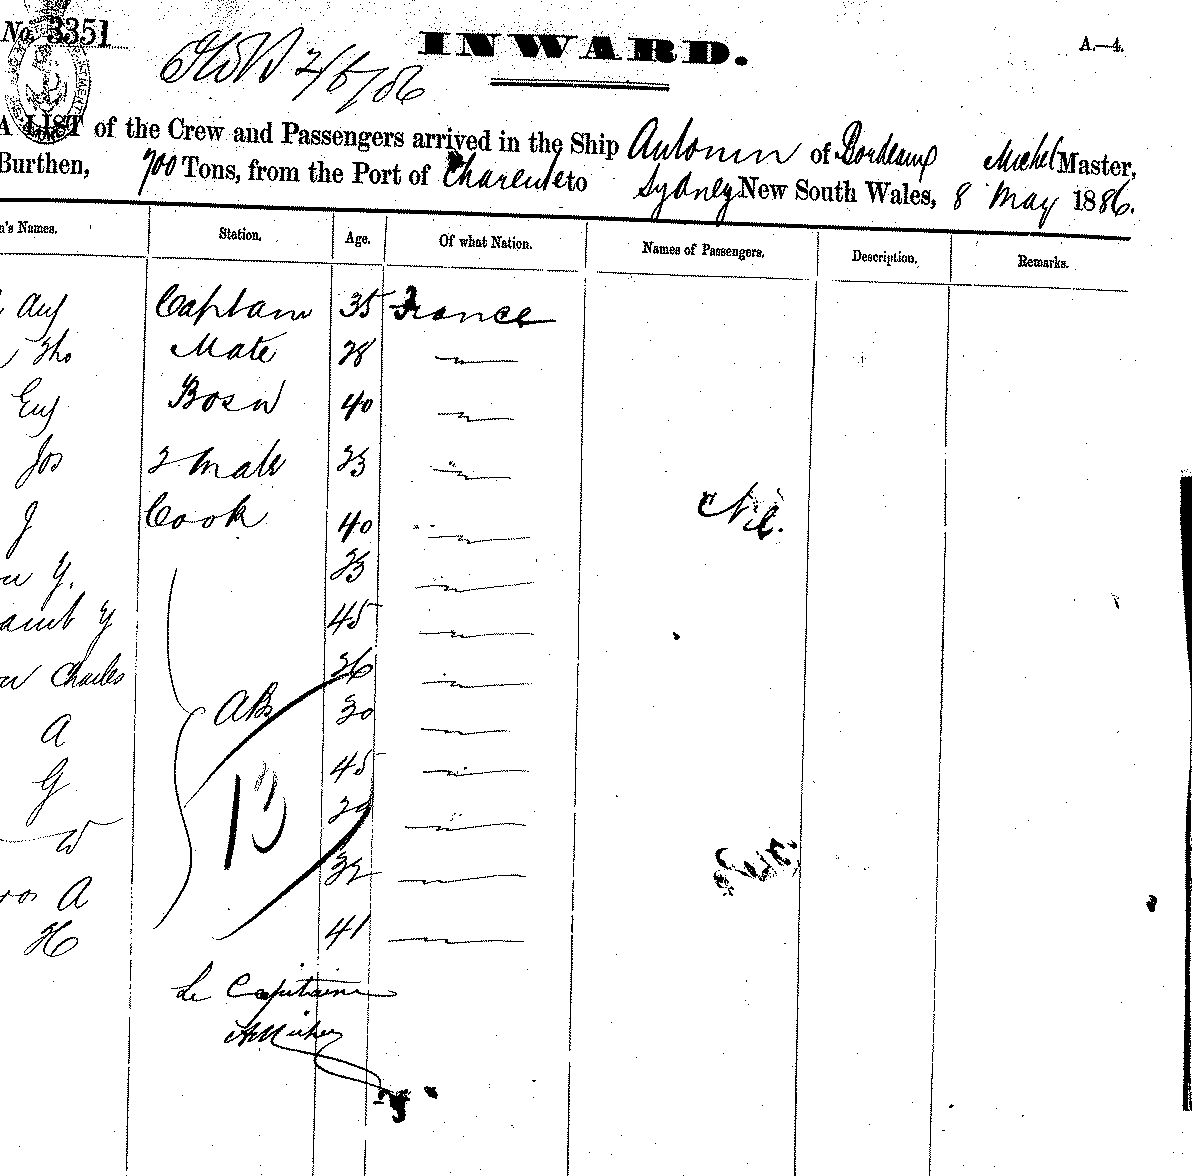 No. 3351
INWARD.
A.—4.
2/6/86
A LIST of the Crew and Passengers arrived in the Ship Antonin of Bordeaux Michel Master,
Burthen, 700 Tons, from the Port of Charente to Sydney New South Wales, 8 May 1886.
's Names. Station. Age. Of what Nation. Names of Passengers. Description. Remarks.
Aug Captain 35 France
Tho Mate 28 "
Eug Bosn 40 "
Jos 2 Mate 23 "
J Cook 40 "
Nil.
Y. 23 "
Y 45 "
Charles 26 "
A ABs 30 "
G 45 "
13
W 29 "
A 32 "
H 41 "
Le Capitaine
A Michel